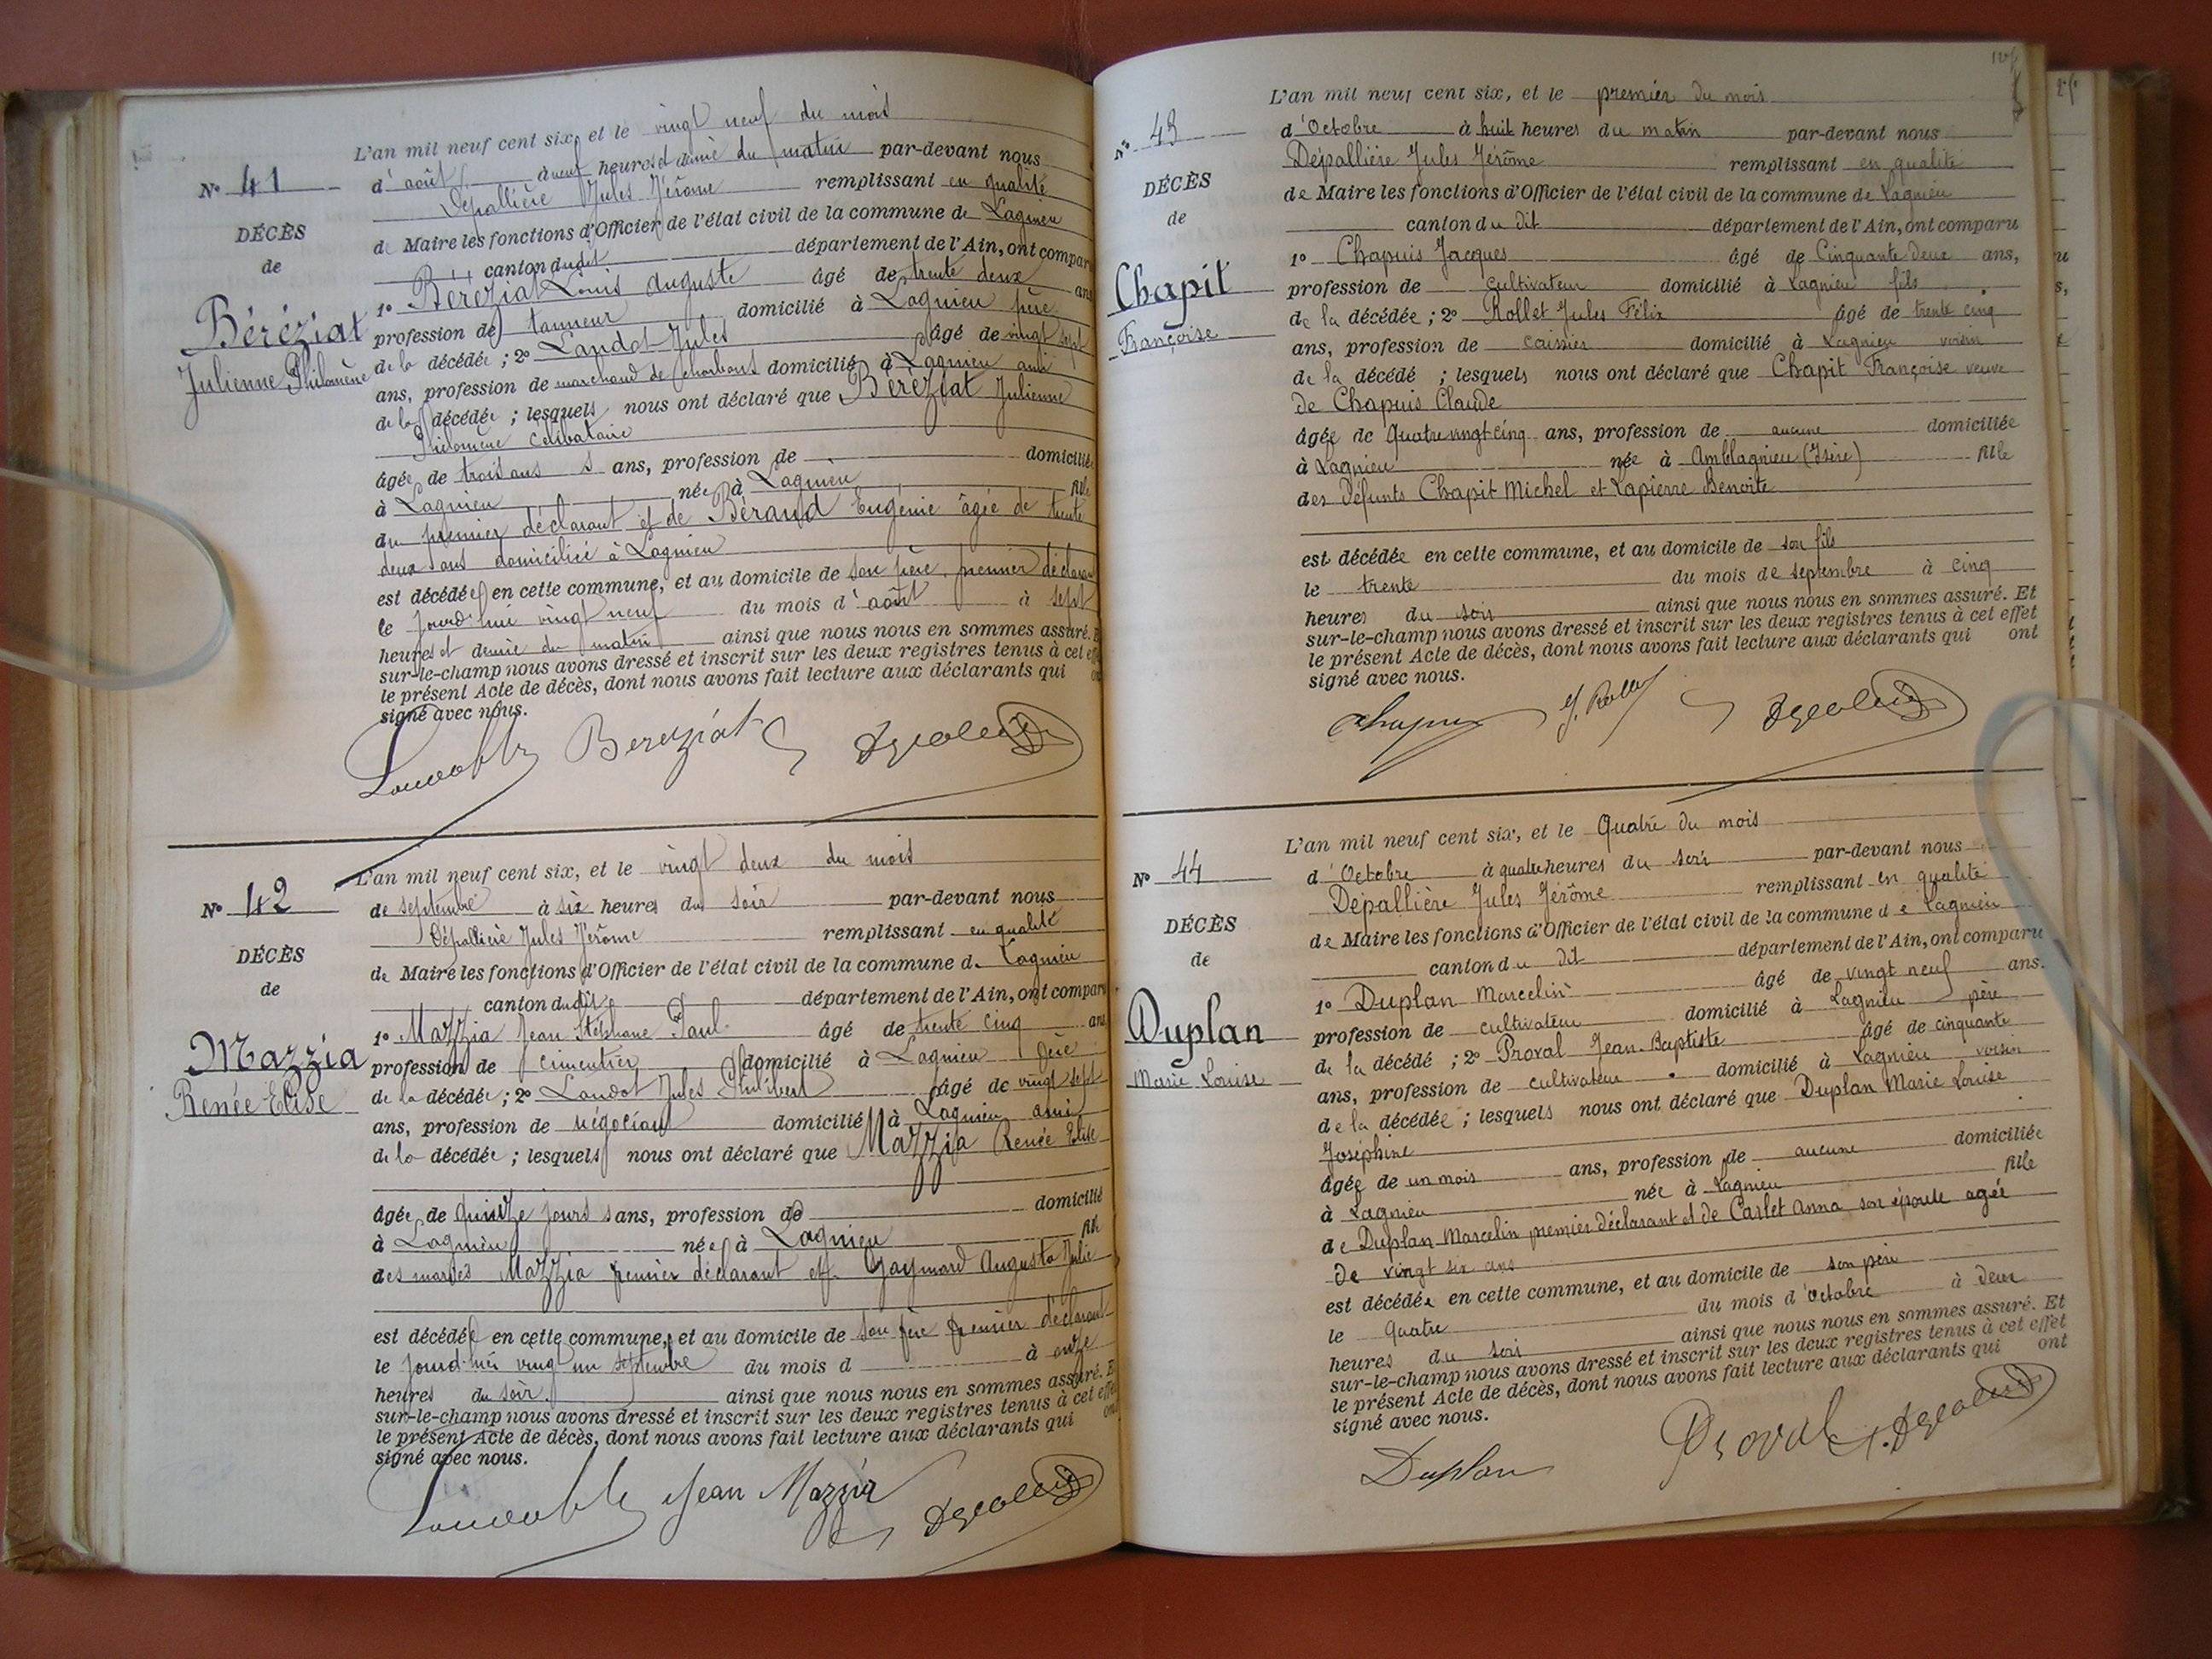 L'an mil neuf cent six, et le vingt neuf du mois
N° 41
d'août à neuf heures et demie du matin par-devant nous
Dépallière Jules Jérôme remplissant en qualité
DÉCÈS
de Maire les fonctions d'Officier de l'état civil de la commune de Lagnieu
de
canton dudit département de l'Ain, ont compar
1° Béréziat Louis Auguste âgé de trente deux ans
Béréziat
profession de tanneur domicilié à Lagnieu père
Julienne Philomène
de la décédée ; 2° Landot Jules âgé de vingt sept
ans, profession de marchand de charbons domicilié à Lagnieu ami
de la décédée ; lesquels nous ont déclaré que Béréziat Julienne
Philomène célibataire
âgée de trois ans s ans, profession de domiciliée
à Lagnieu née à Lagnieu fille
du premier déclarant et de Béraud Eugénie âgée de trente
deux ans domiciliée à Lagnieu
est décédée en cette commune, et au domicile de son père, premier déclarant
le jourd'hui vingt neuf du mois d'août à sept
heures et demie du matin ainsi que nous nous en sommes assuré. E
sur-le-champ nous avons dressé et inscrit sur les deux registres tenus à cet eff
le présent Acte de décès, dont nous avons fait lecture aux déclarants qui on
signé avec nous.
Béréziat
L'an mil neuf cent six, et le vingt deux du mois
N° 42
de septembre à six heures du soir par-devant nous
Dépallière Jules Jérôme remplissant en qualité
DÉCÈS
de Maire les fonctions d'Officier de l'état civil de la commune de Lagnieu
de
canton dudit département de l'Ain, ont compar
1° Mazzia Jean Stéphane Paul âgé de trente cinq ans
Mazzia
profession de cimentier domicilié à Lagnieu père
Renée Elise
de la décédée ; 2° Landot Jules Philibert âgé de vingt sept
ans, profession de négociant domicilié à Lagnieu ami
de la décédée ; lesquels nous ont déclaré que Mazzia Renée Elise
âgée de quinze jours s ans, profession de domicilié
à Lagnieu née à Lagnieu fille
des mariés Mazzia premier déclarant et Gaymard Augusta Julie
est décédée en cette commune, et au domicile de son père premier déclarant
le jourd'hui vingt un septembre du mois d à onze
heures du soir ainsi que nous nous en sommes assuré. E
sur-le-champ nous avons dressé et inscrit sur les deux registres tenus à cet effe
le présent Acte de décès, dont nous avons fait lecture aux déclarants qui ont
signé avec nous.
Jean Mazzia
L'an mil neuf cent six, et le premier du mois
N° 43
d'Octobre à huit heures du matin par-devant nous
Dépallière Jules Jérôme remplissant en qualité
DÉCÈS
de Maire les fonctions d'Officier de l'état civil de la commune de Lagnieu
de
canton du dit département de l'Ain, ont comparu
1° Chapuis Jacques âgé de Cinquante deux ans,
Chapit
profession de cultivateur domicilié à Lagnieu fils
Françoise
de la décédée ; 2° Rollet Jules Félix âgé de trente cinq
ans, profession de caissier domicilié à Lagnieu voisin
de la décédé ; lesquels nous ont déclaré que Chapit Françoise veuve
de Chapuis Claude
âgée de Quatre vingt cinq ans, profession de aucune domiciliée
à Lagnieu née à Amblagnieu (Isère) fille
des défunts Chapit Michel et Lapierre Benoite
est décédée en cette commune, et au domicile de son fils
le trente du mois de septembre à cinq
heures du soir ainsi que nous nous en sommes assuré. Et
sur-le-champ nous avons dressé et inscrit sur les deux registres tenus à cet effet
le présent Acte de décès, dont nous avons fait lecture aux déclarants qui ont
signé avec nous.
Chapuis J. Rollet
L'an mil neuf cent six, et le Quatre du mois
N° 44
d'Octobre à quatre heures du soir par-devant nous
Dépallière Jules Jérôme remplissant en qualité
DÉCÈS
de Maire les fonctions d'Officier de l'état civil de la commune d e Lagnieu
de
canton du dit département de l'Ain, ont comparu
1° Duplan Marcelin âgé de vingt neuf ans.
Duplan
profession de cultivateur domicilié à Lagnieu père
Marie Louise
de la décédé ; 2° Proval Jean-Baptiste âgé de cinquante
ans, profession de cultivateur domicilié à Lagnieu voisin
de la décédée ; lesquels nous ont déclaré que Duplan Marie Louise
Joséphine
âgée de un mois ans, profession de aucune domiciliée
à Lagnieu née à Lagnieu fille
de Duplan Marcelin premier déclarant et de Carlet Anna son épouse agée
de vingt six ans
est décédée en cette commune, et au domicile de son père
le quatre du mois d'octobre à deux
heures du soir ainsi que nous nous en sommes assuré. Et
sur-le-champ nous avons dressé et inscrit sur les deux registres tenus à cet effet
le présent Acte de décès, dont nous avons fait lecture aux déclarants qui ont
signé avec nous.
Duplan Proval